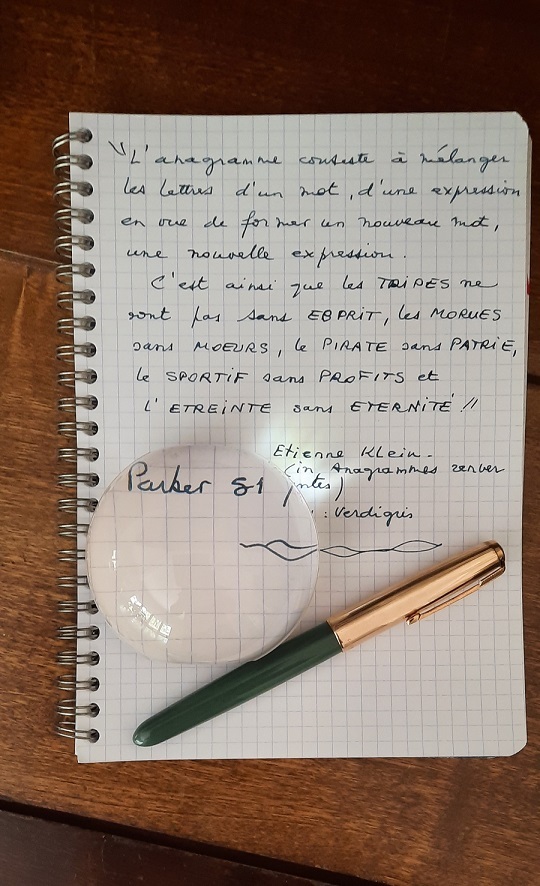 L'anagramme consiste à mélanger
les lettres d'un mot, d'une expression
en vue de former un nouveau mot,
une nouvelle expression.
C'est ainsi que les TRIPES ne
sont pas sans ESPRIT, les MORUES
sans MOEURS, le PIRATE sans PATRIE,
le SPORTIF sans PROFITS et
L'ETREINTE sans ETERNITÉ !!
Etienne Klein.
(in Anagrammes renver
Parker 51
ntes)
: Verdigris